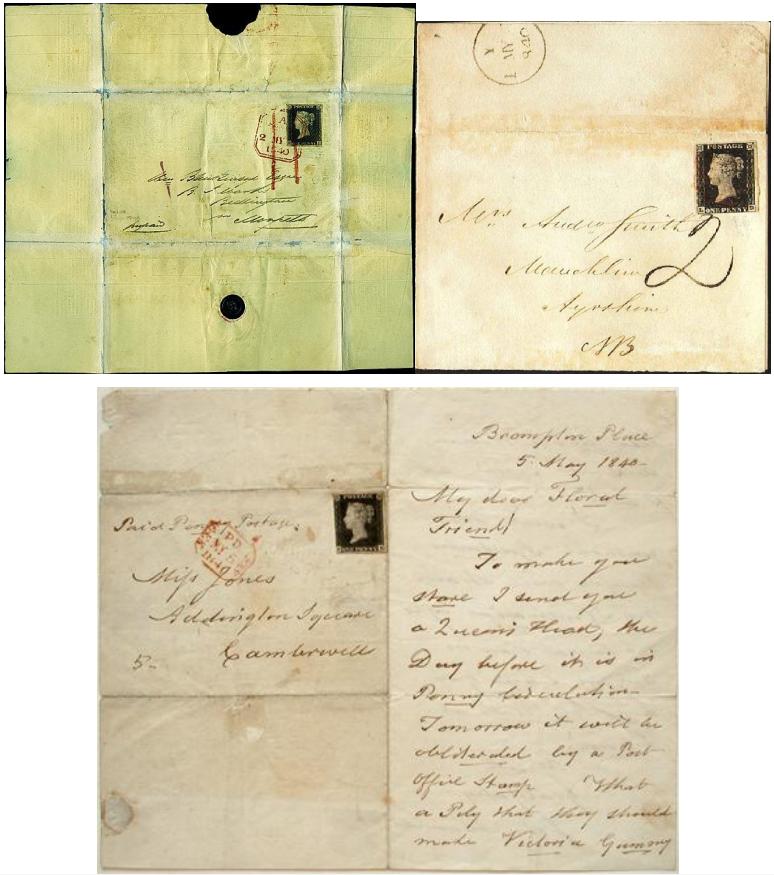 POSTAGE
2 MY
1840
Esqre
Bedlington
Morpeth
prepaid
Y
1 MY
1840
POSTAGE
ONE PENNY
Mrs Andw Smith
2
Mauchline
Ayrshire
NB
POSTAGE
ONE PENNY
Paid Penny Postage.
1PD
MY 5
1840
Miss Jones
Addington Square
Camberwell
5-
Brompton Place
5 May 1840-
My dear Floral
Friend!
To make you
stare I send you
a Queen's Head, the
Day before it is in
Penny circulation-
Tomorrow it will be
obliterated by a Post
Office Stamp What
a Pity that they should
make Victoria Gummy